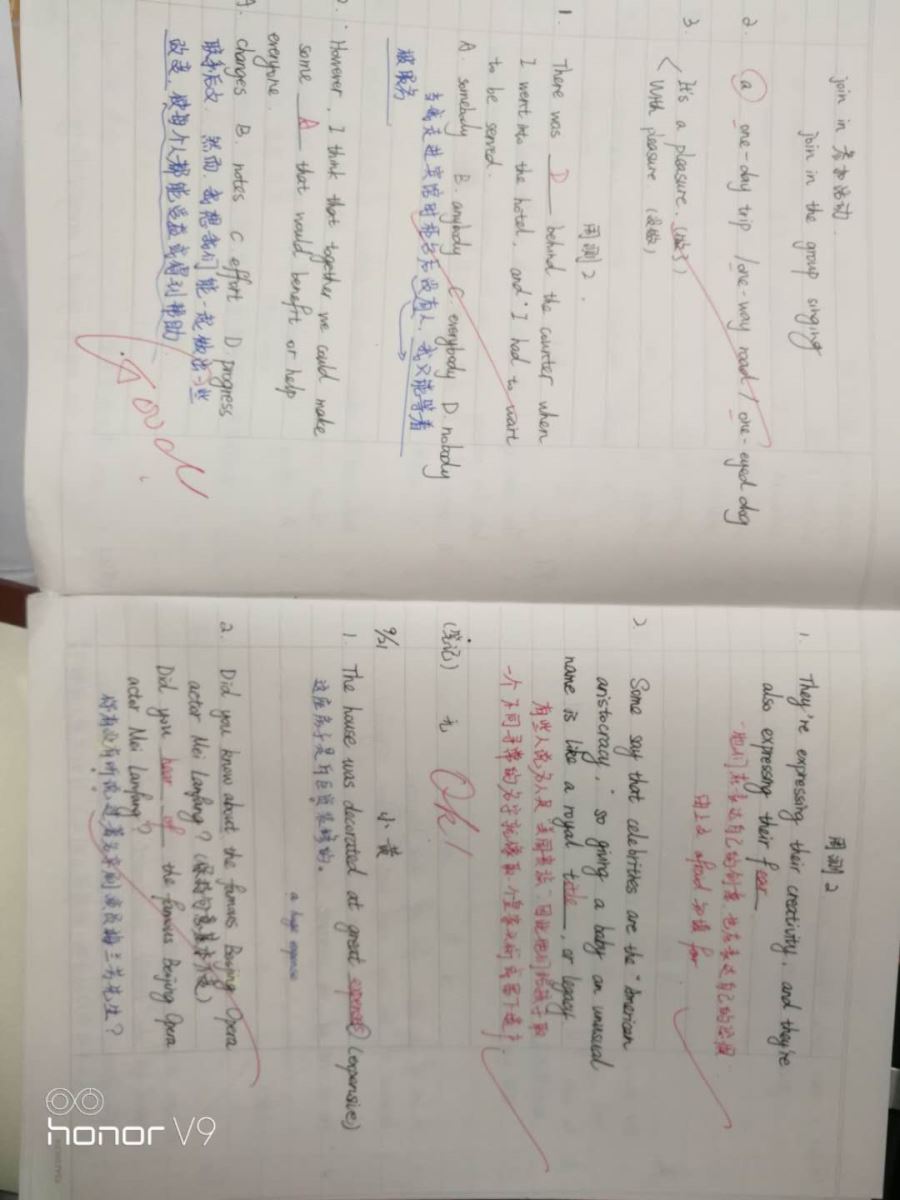 join in 参加活动.
join in the group singing
2. a one-day trip / one-way road / one-eyed dog
3. It's a pleasure.
With pleasure
周测2.
1. There was D behind the counter when
I went into the hotel, and I had to wait
to be served.
A. somebody B. anybody C. everybody D. nobody
当我走进宾馆时柜台后没有人,我只能等着
被服务
2. However, I think that together we could make
some A that would benefit or help
everyone.
A. changes B. notes C. effort D. progress
联系后文, 然而,我想我们能一起做出一些
改变,使每个人都能受益或得到帮助.
Good!
周测2
1. They're expressing their creativity, and they're
also expressing their fear
他们在表达自己的创意,也在表达自己的恐惧.
2 Some say that celebrities are the "American
aristocracy," so giving a baby an unusual
name is like a royal title, or legacy
有些人说名人是美国贵族,因此他们给孩子取
一个不同寻常的名字就像
(笔记) 无
Ok!
9/21 小黄
1. The house was decorated at great expense (expensive)
这座房子是斥巨资装修的.
a huge expense
2. Did you know about the famous Beijing Opera
actor Mei Lanfang? (保持句意基本不变)
Did you hear of the famous Beijing Opera
actor Mei Lanfang?
你有没有听说过著名京剧演员梅兰芳先生?
honor V9